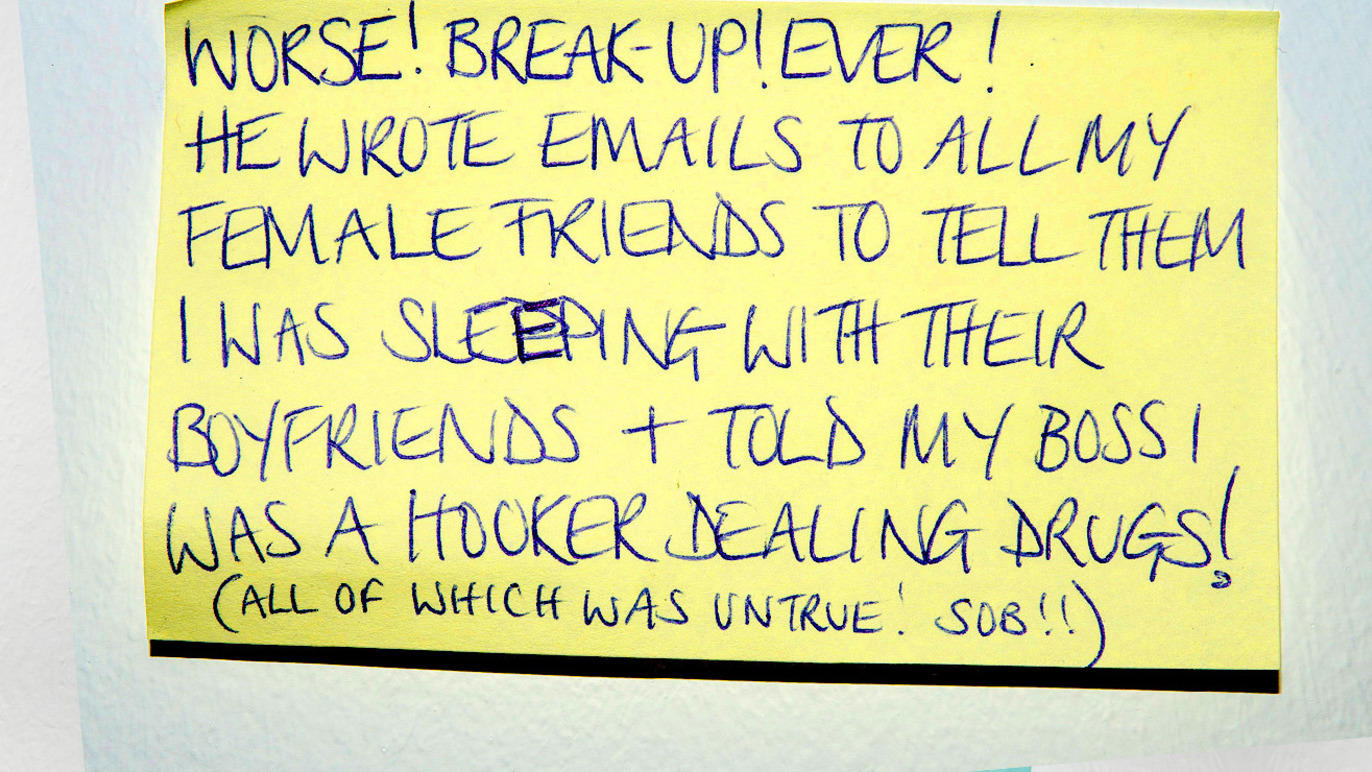 WORSE! BREAK-UP! EVER!
HE WROTE EMAILS TO ALL MY
FEMALE FRIENDS TO TELL THEM
I WAS SLEEPING WITH THEIR
BOYFRIENDS + TOLD MY BOSS I
WAS A HOOKER DEALING DRUGS!
(ALL OF WHICH WAS UNTRUE! SOB!!)